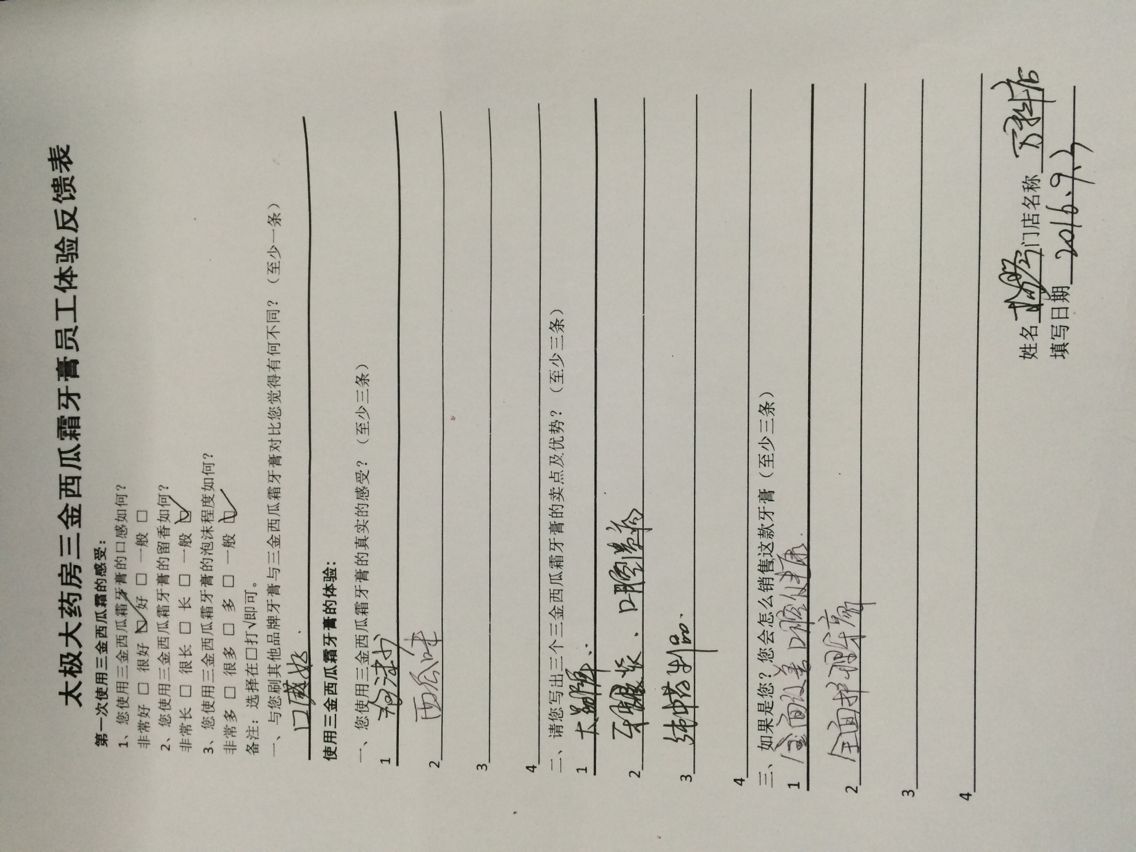 太极大药房三金西瓜霜牙膏员工体验反馈表
第一次使用三金西瓜霜的感受：
1、您使用三金西瓜霜牙膏的口感如何？
非常好 □ 很好 ☑ 好 □ 一般 □
2、您使用三金西瓜霜牙膏的留香如何？
非常长 □ 很长 □ 长 □ 一般 ☑
3、您使用三金西瓜霜牙膏的泡沫程度如何？
非常多 □ 很多 □ 多 □ 一般 ☑
备注：选择在□打√即可。
一、与您刷其他品牌牙膏与三金西瓜霜牙膏对比您觉得有何不同？（至少一条）
口感好.
使用三金西瓜霜牙膏的体验：
一、您使用三金西瓜霜牙膏的真实的感受？（至少三条）
1
2 西瓜味
3
4
二、请您写出三个三金西瓜霜牙膏的卖点及优势？（至少三条）
1 大品牌.
2 牙龈炎、口腔溃疡
3 纯中药制品.
4
三、如果是您？您会怎么销售这款牙膏（至少三条）
1 全面改善口腔健康.
2 全面护理牙膏
3
4
姓名 门店名称 万科店
填写日期 2016.9.3